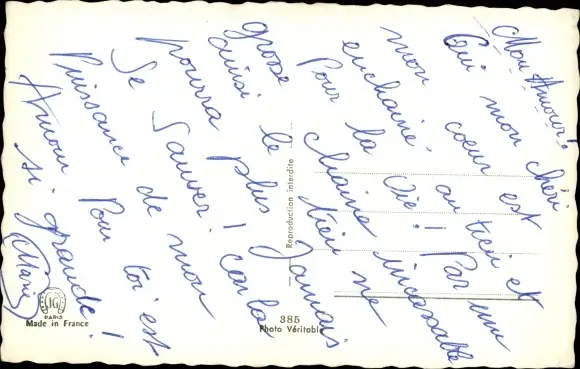 Mon Amour!
Oui mon chéri
mon coeur est
enchainé au tien et
Pour la Vie! Par une
grosse chaine incassable
ainsi le tien ne
pourra plus Jamais
Se Sauver! car la
Puissance de mon
Amour Pour toi est
si grande!
(Marie)
Reproduction interdite
JG
PARIS
Made in France
385
Photo Véritable